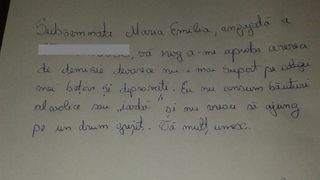 Subsemnata Maria Emilia, angajată a
, vă rog a-mi aproba cererea
de demisie deoarece nu-i mai suport pe colegii
mei bețivi și depravați. Eu nu consum băuturi
alcolice sau "iarbă" și nu vreau să ajung
pe un drum greșit. Vă mulț umesc.